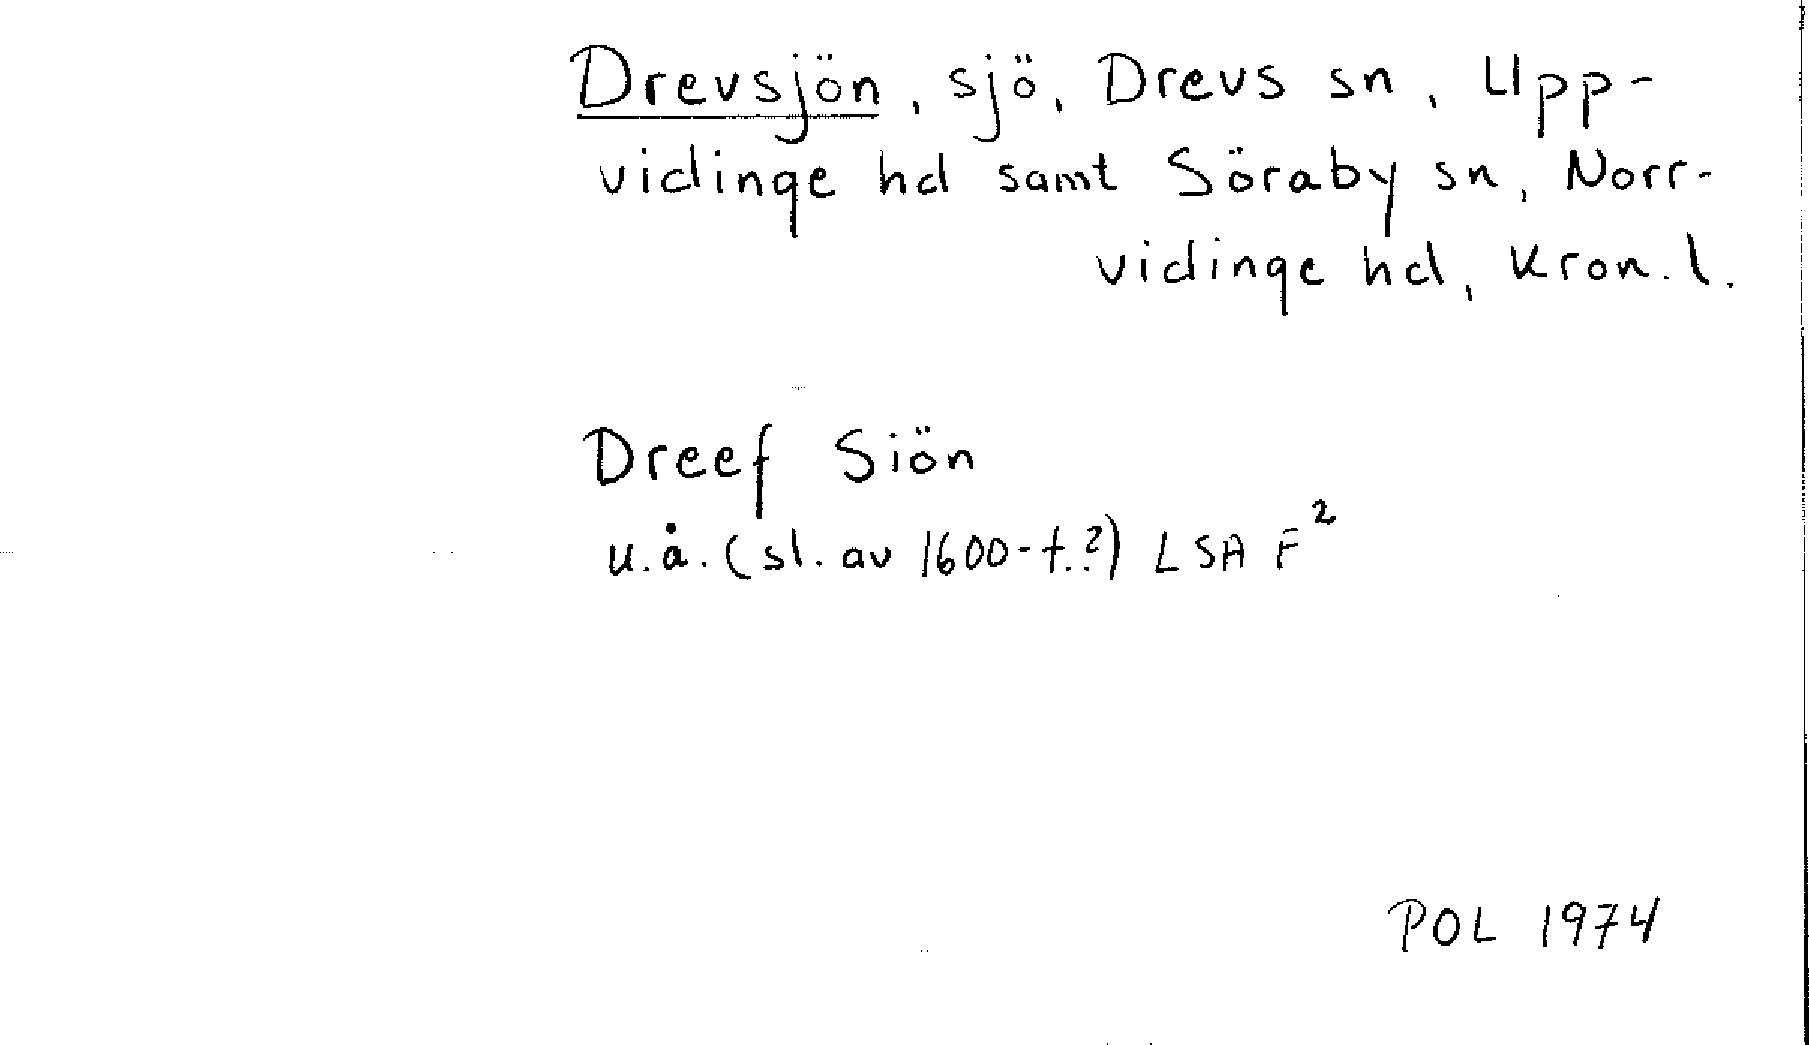 Drevsjön, sjö, Drevs sn, Upp-
vidinge hd samt Söraby sn, Norr-
vidinge hd, Kron. l.
Dreef Siön
u.å. (sl. av 1600-t.?) LSA F²
POL 1974